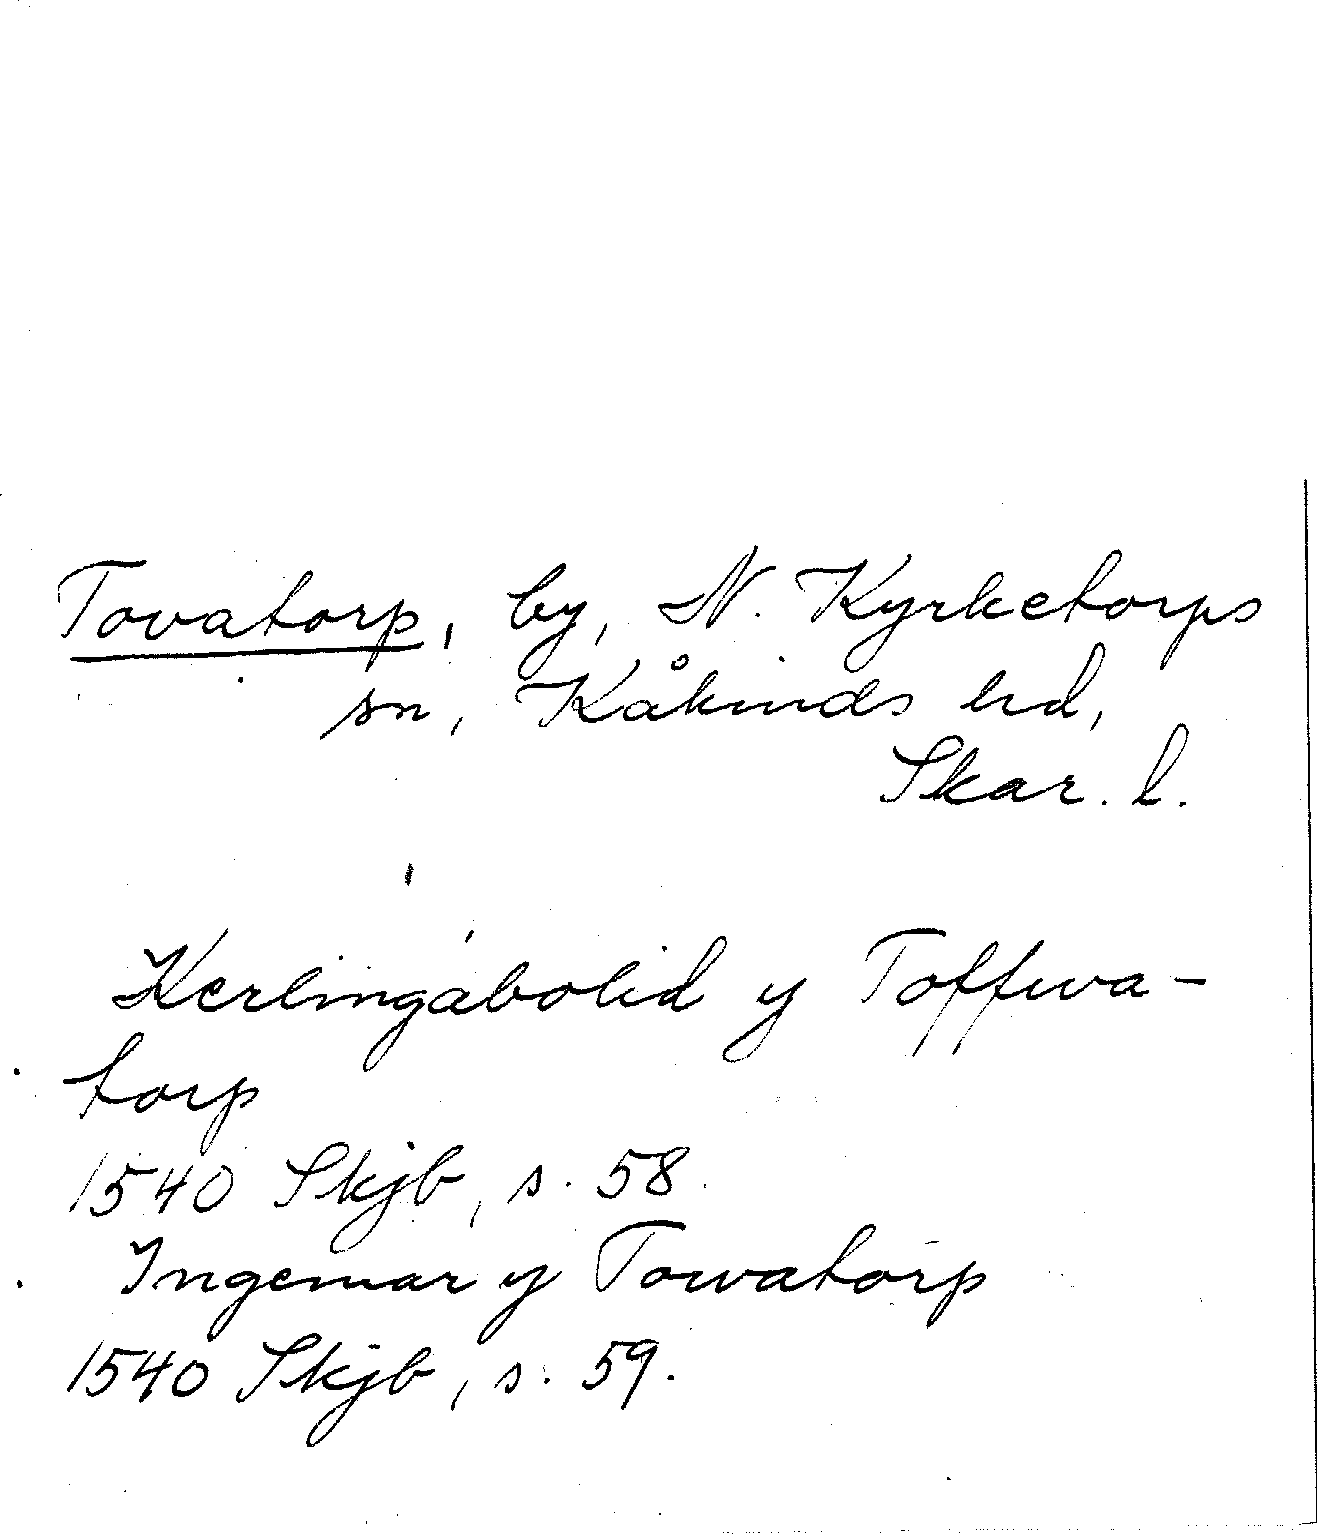 Tovatorp, by, N. Kyrketorps
sn, Kåkinds hd,
Skar. l.
Kerlingabolid y Toffwa-
torp
1540 Skjb, s. 58.
Ingemar y Towatorp
1540 Skjb, s. 59.